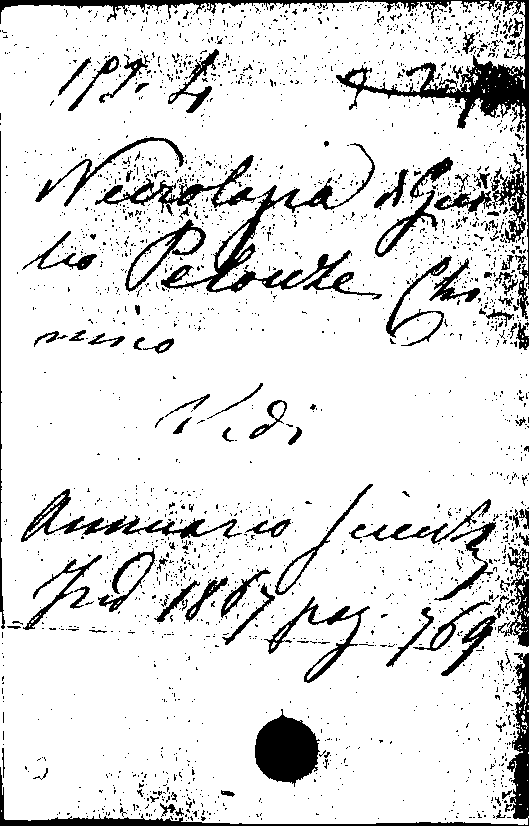 Necrologia di Giu-
lio Pelouze Chi-
mico
Vedi
Annuario Scient
Ind 1867 pag. 769